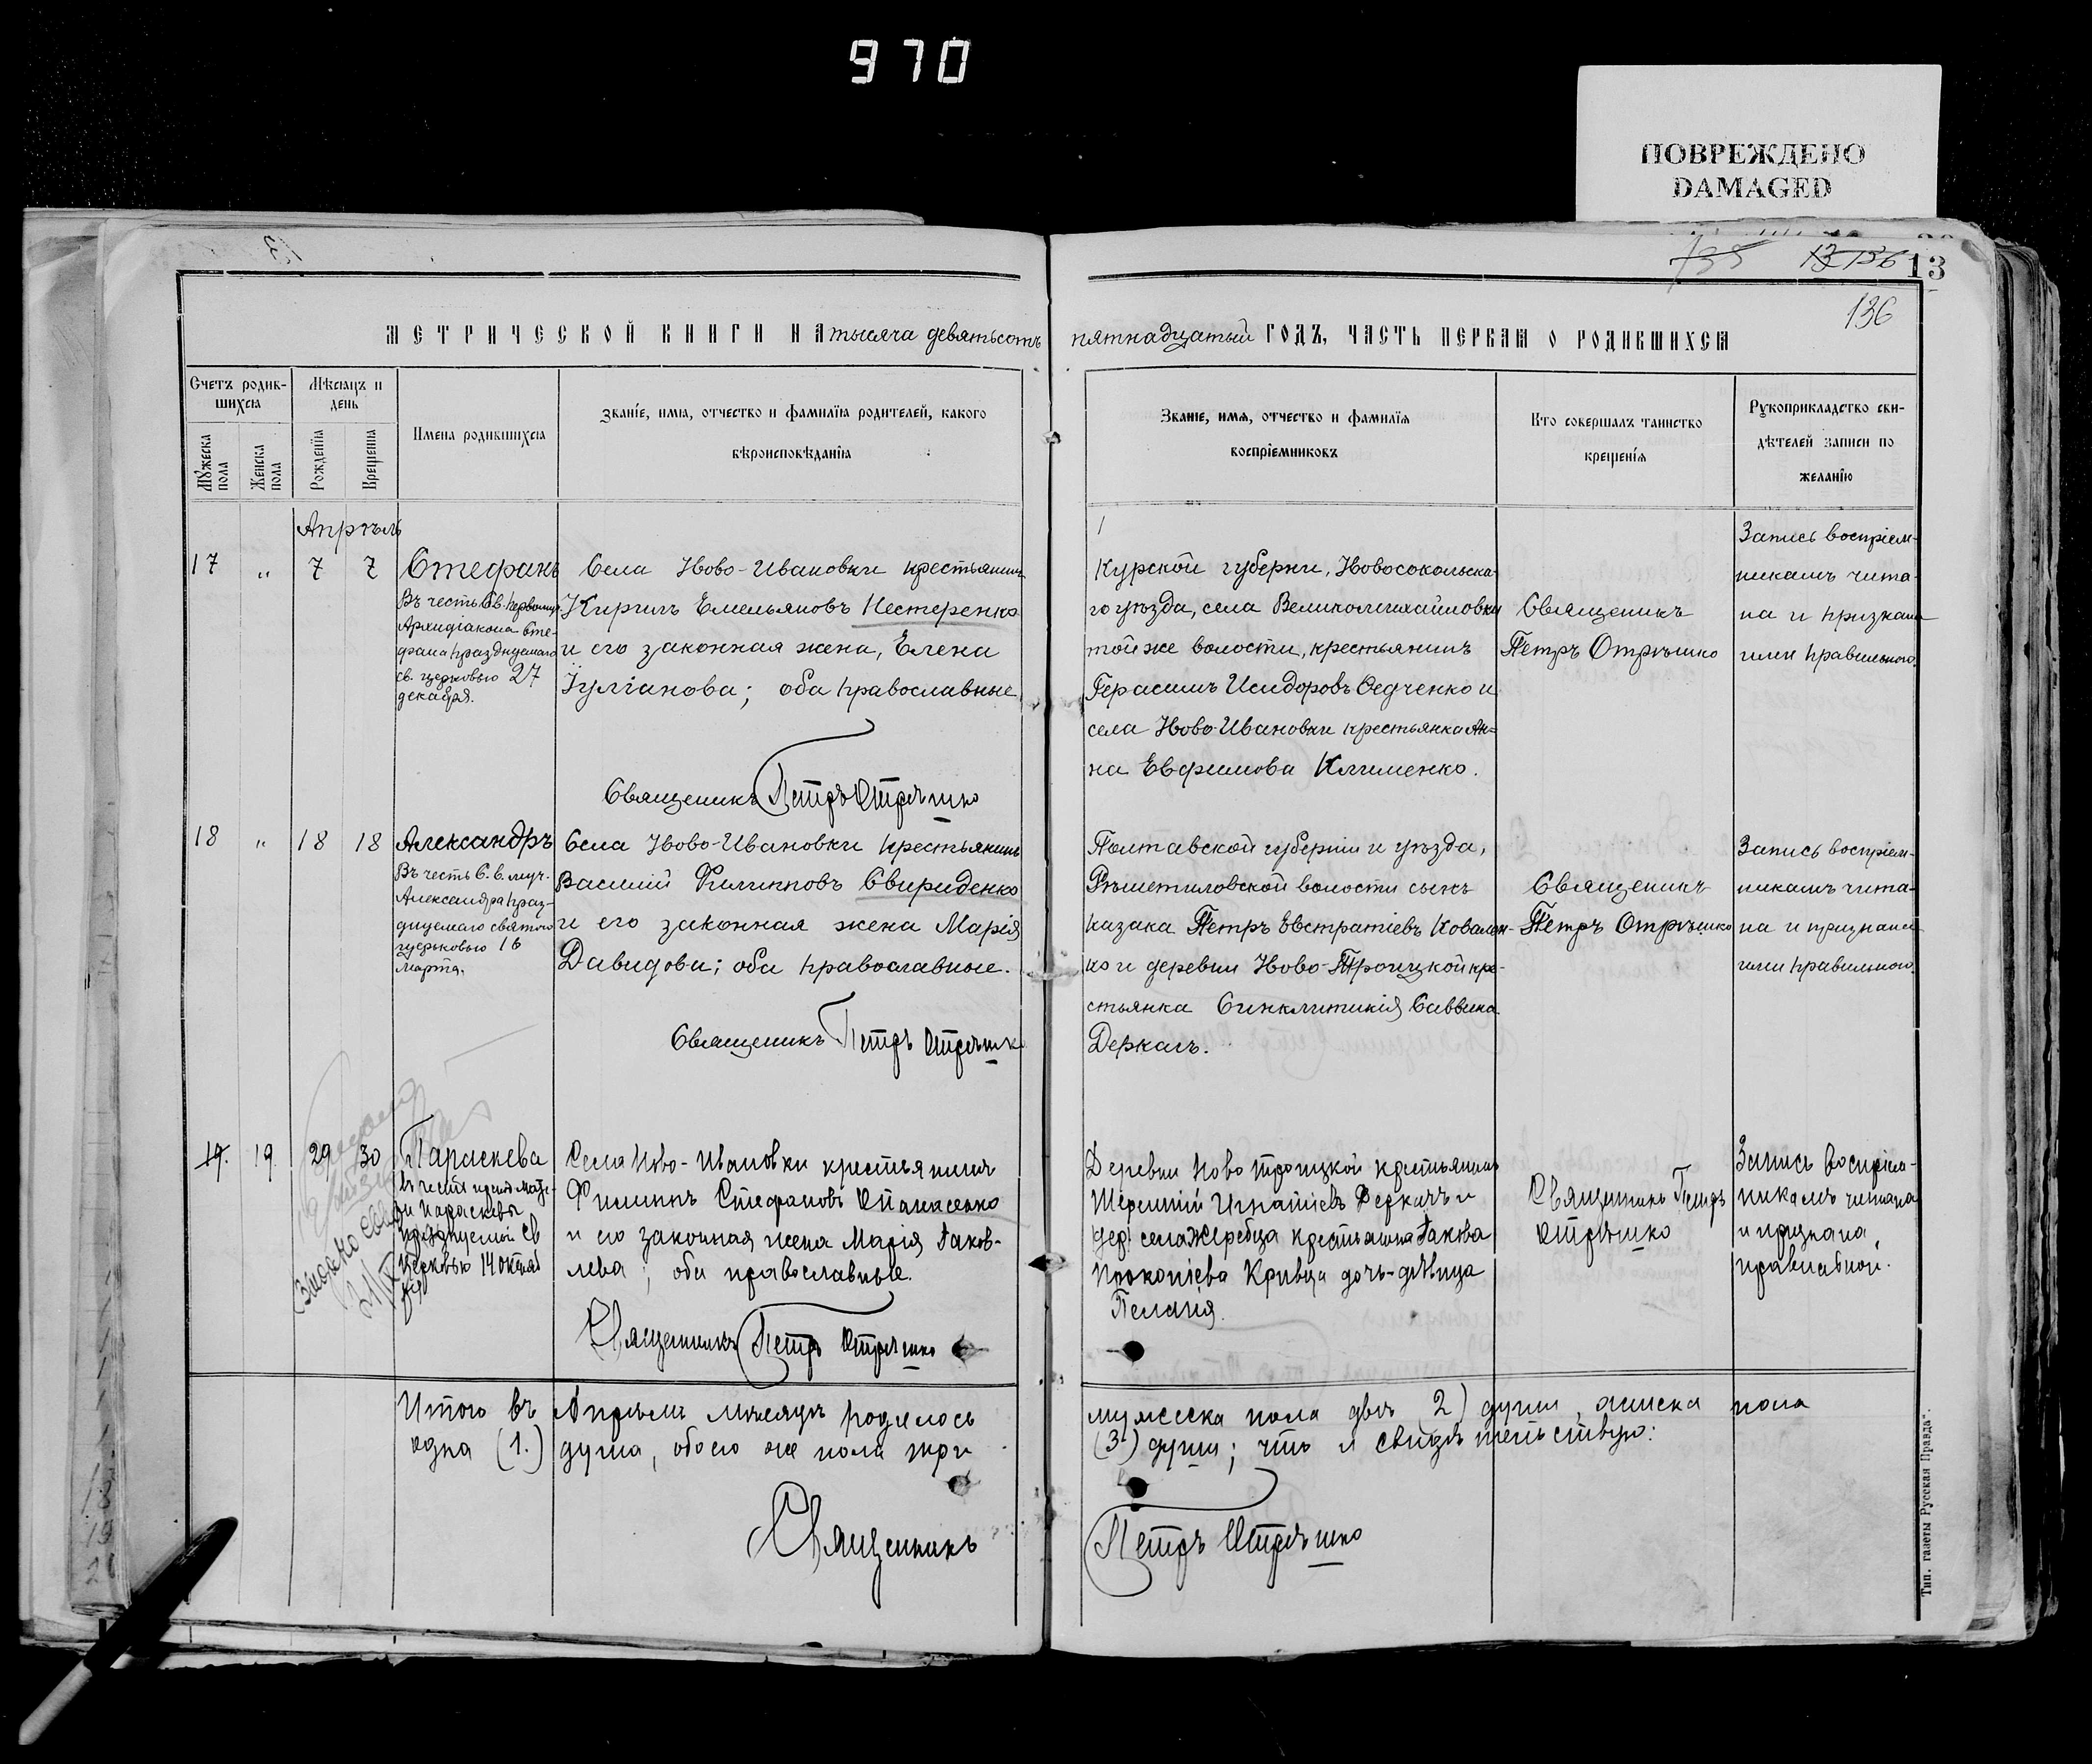 970
ПОВРЕЖДЕНО
DAMAGED
13
136
МЕТРИЧЕСКОЙ КНИГИ НА тысяча девятьсотъ пятнадцатый ГОДЪ, ЧАСТЬ ПЕРВАЯ О РОДИВШИХСЯ
Счетъ родив-
шихся
Мѣсяцъ и
день
Мужеска
пола
Женска
пола
Рожденія
Крещенія
Имена родившихся
Званіе, имя, отчество и фамилія родителей, какого
вѣроисповѣданія
Званіе, имя, отчество и фамилія
воспріемниковъ
Кто совершалъ таинство
крещенія
Рукоприкладство сви-
дѣтелей записи по
желанію
Апрѣль
17 " 7 7
Стефанъ
Въ честь Св. Первомуч.
Архидіакона Сте-
фана празднуемаго
св. церковью 27
декабря.
Села Ново-Ивановки крестьянинъ
Кирилъ Емельяновъ Нестеренко
и его законная жена, Елена
Іуліанова; оба православные
Священникъ Петръ Отрѣшко
Курской губерніи, Новооскольска-
го уѣзда, села Великомихайловки
той же волости, крестьянинъ
Герасимъ Исидоровъ Ѳедченко и
села Ново-Ивановки крестьянка Ан=
на Евфимова Клименко.
Священикъ
Петръ Отрѣшко
Запись воспріем-
никамъ чита-
на и признана
ими правильною.
18 " 18 18
Александръ
Въ честь С. в. муч.
Александра праз-
днуемаго святою
церьковью 16
Марта.
Села Ново-Ивановки крестьянинъ
Василій Филипповъ Свириденко
и его законная жена Марія
Давидова; оба православные.
Священикъ Петръ Отрѣшко
Полтавской губерніи и уѣзда,
Рѣшетиловской волости сынъ
казака Петръ Евстратіевъ Ковален-
ко и деревни Ново-Троицкой кре-
стьянка Синклитикія Саввина
Деркачъ.
Священикъ
Петръ Отрѣшко
Запись воспріем-
никамъ чита-
на и признана
ими правильною.
19. 19 29 30
Параскева
въ честь препод. мате-
ри Параскевы
празднуемой Св
Церковью 14 октяб
ря
Села Ново-Ивановки крестьянинъ
Филиппъ Стефановъ Опанасенко
и его законная жена Марія Іаков-
лева; оба православные.
Священникъ Петръ Отрѣшко
Деревни Ново Троицкой крестьянинъ
Игнатіевъ Деркачъ и
села Жеребца крестьянина Іакова
Прокопіева Кривца дочь-дѣвица
Пелагія.
Священникъ Петръ
Отрѣшко
Запись воспріем-
никамъ читана
и признана
правильной.
Итого въ Апрѣлѣ мѣсяцѣ родилось мужеска пола двѣ (2) души, женска пола
одна (1.) душа, обоего же пола три (3) души; что и свидѣтельствую:
Священникъ Петръ Отрѣшко
Тип. газеты Русская Правда".